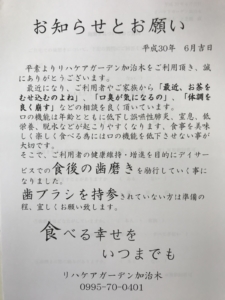 お知らせとお願い
平成30年　6月吉日
平素よりリハケアガーデン加治木をご利用頂き、誠
にありがとうございます。
最近になり、ご利用者やご家族から「最近、お茶を
むせ込むのよね」、「口臭が気になるの」、「体調を
良く崩す」などの相談を良く頂いています。
口の機能は年齢とともに低下し誤嚥性肺炎、窒息、低
栄養、脱水などが起こりやすくなります。食事を美味
しく楽しく食べる為には口の機能を低下させない事が
大切です。
そこで、ご利用者の健康維持・増進を目的にデイサー
ビスでの食後の歯磨きを励行していく事に
なりました。
歯ブラシを持参されていない方は準備の
程、宜しくお願い致します。
食べる幸せを
いつまでも
リハケアガーデン加治木
0995-70-0401